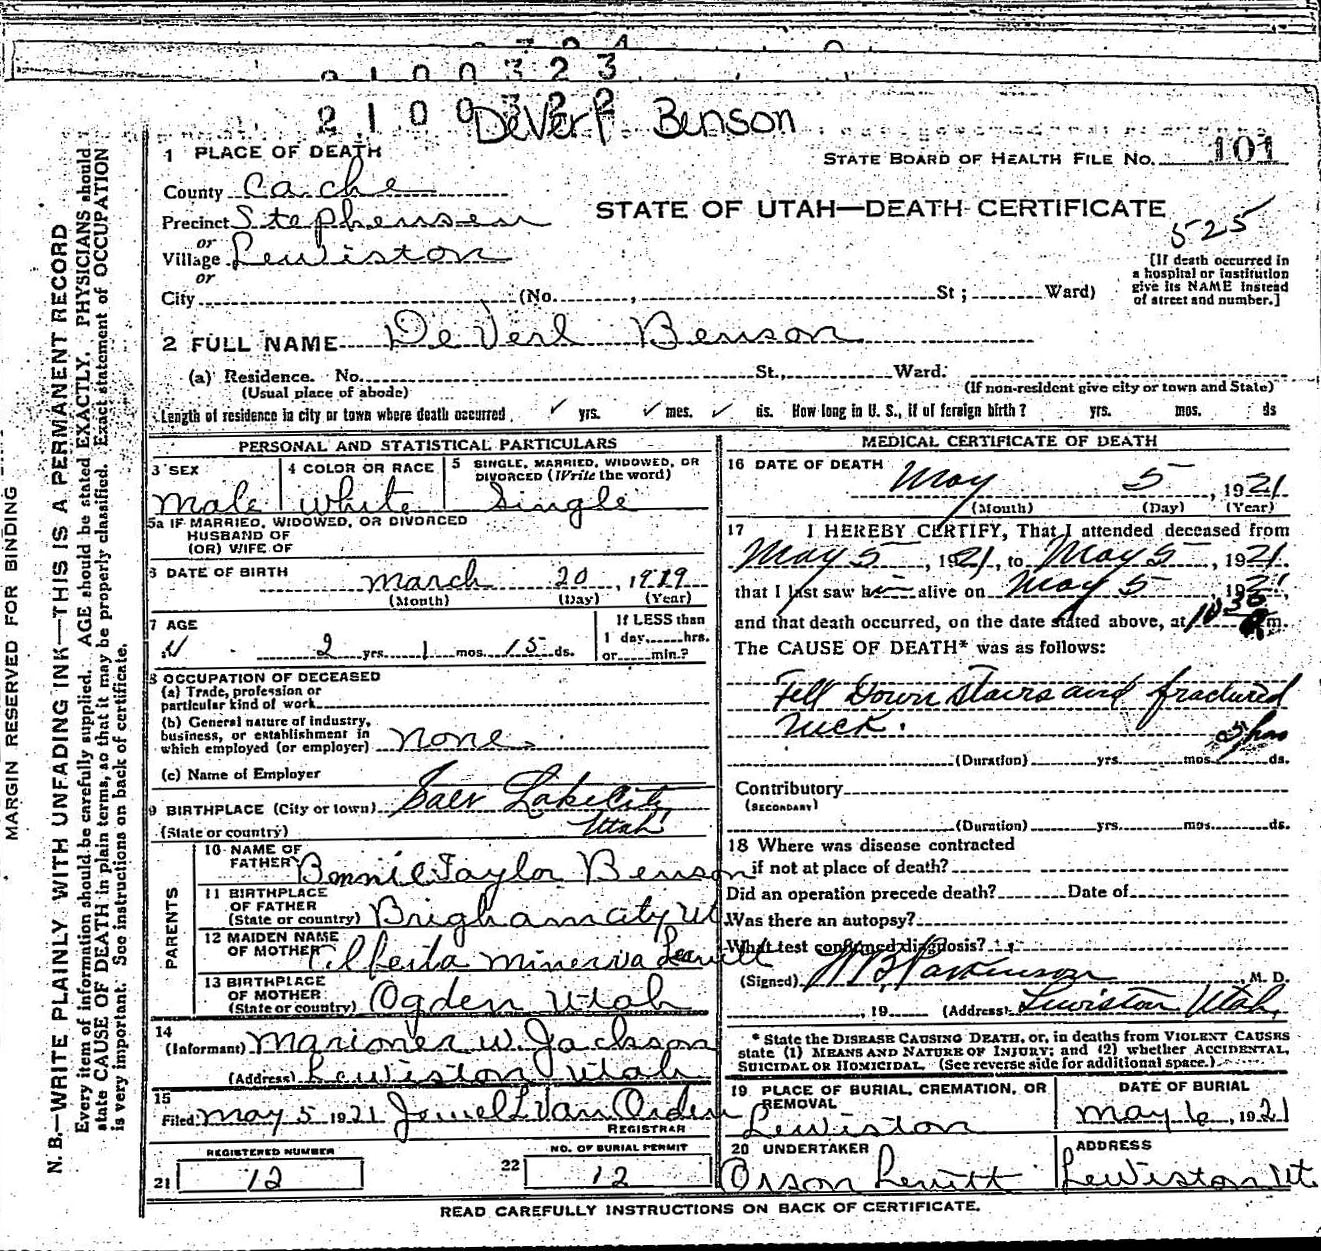 2 1 0 0 3 2 3
2 1 0 0 3 2 2
DeVerl Benson
1 PLACE OF DEATH
STATE BOARD OF HEALTH FILE NO. 101
County Cache
STATE OF UTAH—DEATH CERTIFICATE
Precinct Stephensen
525
or
Village Lewiston
or
[If death occurred in
a hospital or institution
give its NAME instead
of street and number.]
City (No. , St ; Ward)
2 FULL NAME DeVerl Benson
(a) Residence. No. St., Ward.
(Usual place of abode) (If non-resident give city or town and State)
Length of residence in city or town where death occurred ✓ yrs. ✓ mos. ✓ ds. How long in U. S., if of foreign birth? yrs. mos. ds
PERSONAL AND STATISTICAL PARTICULARS
3 SEX
Male
4 COLOR OR RACE
White
5 SINGLE, MARRIED, WIDOWED, OR
DIVORCED (Write the word)
Single
5a IF MARRIED, WIDOWED, OR DIVORCED
HUSBAND OF
(OR) WIFE OF
6 DATE OF BIRTH March 20, 1919
(Month) (Day) (Year)
7 AGE
2 yrs. 1 mos. 15 ds.
If LESS than
1 day, hrs.
or min.?
8 OCCUPATION OF DECEASED
(a) Trade, profession or
particular kind of work
(b) General nature of industry,
business, or establishment in
which employed (or employer) none.
(c) Name of Employer
9 BIRTHPLACE (City or town) Salt Lake City
(State or country) Utah
PARENTS
10 NAME OF
FATHER Bennie Taylor Benson
11 BIRTHPLACE
OF FATHER
(State or country) Brigham City Ut
12 MAIDEN NAME
OF MOTHER Minerva Leavitt
13 BIRTHPLACE
OF MOTHER
(State or country) Ogden Utah
14
(Informant) Marioner W. Jackson
(Address) Lewiston Utah
15
Filed May 5 1921 Jewel L Van Orden
REGISTRAR
REGISTERED NUMBER
21 12
NO. OF BURIAL PERMIT
22 12
MEDICAL CERTIFICATE OF DEATH
16 DATE OF DEATH
May 5, 1921
(Month) (Day) (Year)
17 I HEREBY CERTIFY, That I attended deceased from
May 5, 1921, to May 5, 1921
that I last saw him alive on May 5 1921,
and that death occurred, on the date stated above, at 10 30 m.
The CAUSE OF DEATH* was as follows:
Fell Down stairs and fractured
neck.
hrs
(Duration) yrs. mos. ds.
Contributory
(SECONDARY)
(Duration) yrs. mos. ds.
18 Where was disease contracted
if not at place of death?
Did an operation precede death? Date of
Was there an autopsy?
What test confirmed diagnosis?
(Signed) W B Parkinson M. D.
, 19 (Address) Lewiston Utah,
* State the DISEASE CAUSING DEATH, or, in deaths from VIOLENT CAUSES
state (1) MEANS AND NATURE OF INJURY; and (2) whether ACCIDENTAL,
SUICIDAL OR HOMICIDAL. (See reverse side for additional space.)
19 PLACE OF BURIAL, CREMATION, OR
REMOVAL
Lewiston
DATE OF BURIAL
May 6, 1921
20 UNDERTAKER
Orson Levitt
ADDRESS
Lewiston Ut.
READ CAREFULLY INSTRUCTIONS ON BACK OF CERTIFICATE.
MARGIN RESERVED FOR BINDING
N. B.—WRITE PLAINLY WITH UNFADING INK—THIS IS A PERMANENT RECORD
Every item of information should be carefully supplied. AGE should be stated EXACTLY. PHYSICIANS should
state CAUSE OF DEATH in plain terms, so that it may be properly classified. Exact statement of OCCUPATION
is very important. See instructions on back of certificate.